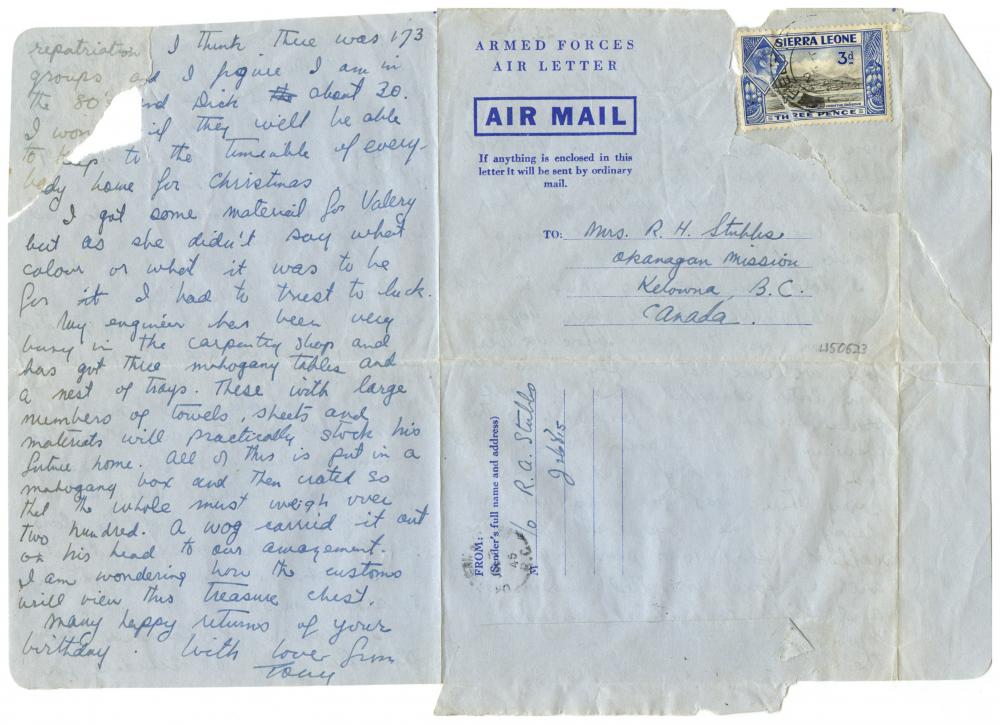 repatriation I think there was 173
groups and I figure I am in
the 80's and Dick about 30.
I won if they will be able
to keep to the timeable of every-
body home for Christmas.
I got some material for Valery
but as she didn't say what
colour or what it was to be
for it I had to trust to luck.
My engineer has been very
busy in the carpentry shop and
has got three mahogany tables and
a nest of trays. These with large
numbers of towels, sheets and
materials will practically stock his
future home. All of this is put in a
mahogany box and then crated so
that the whole must weigh over
two hundred. A wog carried it out
on his head to our amazement.
I am wondering how the customs
will view this treasure chest.
Many happy returns of your
birthday. With love from
Tony
ARMED FORCES
AIR LETTER
AIR MAIL
If anything is enclosed in this
letter it will be sent by ordinary
mail.
SIERRA LEONE
3d
THREE PENCE
TO: Mrs. R. H. Stubbs
Okanagan Mission
Kelowna, B.C.
Canada.
FROM:
(Sender's full name and address)
F/O R. A. Stubbs
J26815
45